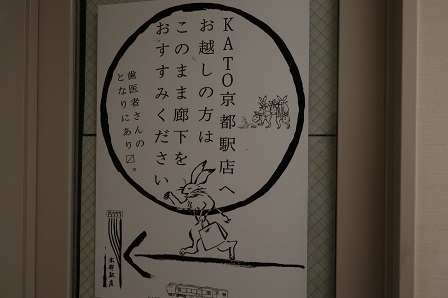 KATO京都駅店へ
お越しの方は
このまま廊下を
おすすみください
歯医者さんの
となりにあり〼。
京都駅店